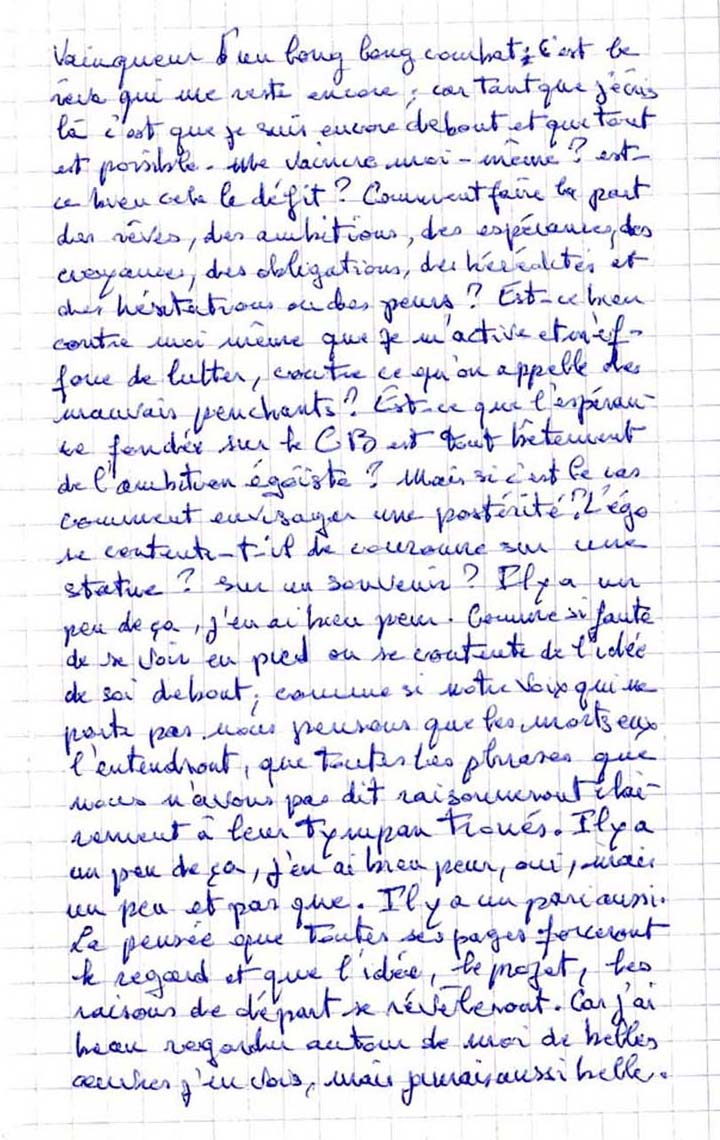 Vainqueur d'un long long combat ; c'est le
rêve qui me reste encore ; car tant que j'écris
là c'est que je suis encore debout et que tout
est possible. Me vaincre moi-même ? est-
ce bien cela le défit ? Comment faire la part
des rêves, des ambitions, des espérances, des
croyances, des obligations, des hérédités et
des hésitations ou des peurs ? Est-ce bien
contre moi même que je m'active et m'ef-
force de lutter, contre ce qu'on appelle des
mauvais penchants ? Est-ce que l'espéran-
ce fondée sur le CB est tout bêtement
de l'ambition égoïste ? Mais si c'est le cas
comment envisager une postérité ? L'égo
se contente-t-il de couronne sur une
statue ? Sur un souvenir ? Il y a un
peu de ça, j'en ai bien peur. Comme si faute
de se voir en pied on se contente de l'idée
de soi debout ; comme si notre voix qui ne
porte pas nous pensons que les morts eux
l'entendront, que toutes les phrases que
nous n'avons pas dit raisonneront clai-
rement à leur tympan troués. Il y a
un peu de ça, j'en ai bien peur, oui, mais
un peu et pas que. Il y a un pari aussi.
La pensée que toutes ses pages forceront
le regard et que l'idée, le projet, les
raisons de départ se révèleront. Car j'ai
beau regarder autour de moi de belles
œuvres j'en vois, mais jamais aussi belle.